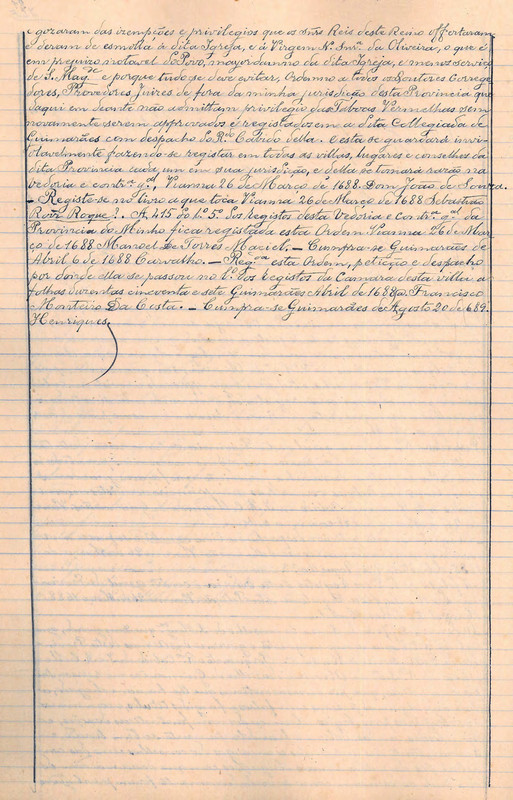 e gozaram das izempções e privilegios que os snr.es Reis deste Reino offertaram
e deram de esmolla á dita Igreja, e á Virgem N. Snr.a da Oliveira, o que é
em prejuizo notavel do Povo, mayordumo da dita Igreja, e menos serviço
de S. Mag.de e porque tudo se deve evitar, Ordenno a todos os Senhores Correge-
dores, Provedores Juizes de fora da minha jurisdição desta Provincia que
daqui em deante não admittam privilegio das Taboas Vermelhas sem
novamente serem approvados e registados em a dita Collegiada de
Guimarães com despacho do R.do Cabido della. E esta se guardará invi-
olavelmente fazendo-se registar em todas as villas, lugares e conselhos da
dita Provincia cada um em sua jurisdição, e della se tomará razão na
Vedoria e contr.a g.al, Vianna 26 de Março de 1688. Dom João de Souza.
– Registe-se no livro a que toca Vianna 26 de Março de 1688 Sebastião
Roiz Roque?. – A, 215 do L.o 5.o dos registos desta Vedoria e contr.a g.al da
Provincia do Minho fica registada esta Ordem Vianna 26 de Mar-
ço de 1688 Manoel de Torres Maciel. – Cumpra-se Guimarães de
Abril 6 de 1688 Carvalho. – Reg.da esta Ordem, petição e despacho
por donde ella se passou no L.o dos registos da Camara desta villa a
folhas duzentas cincoenta e sete Guimarães Abril de 1688 Francisco
Monteiro Da Costa. – Cumpra-se Guimarães de Agosto 20 de 689.
Henriques.